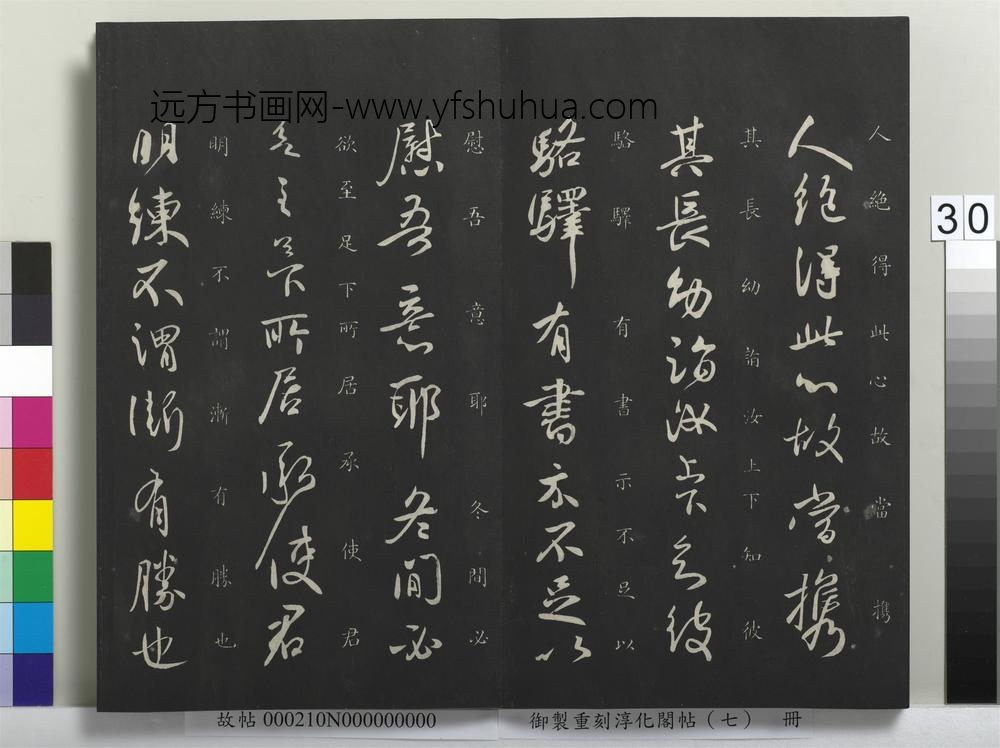 远方书画网-www.yfshuhua.com
人絕得此心故當攜
人絕得此心故當攜
其長幼詣汝上下知彼
其長幼詣汝上下知彼
駱驛有書示不足以
駱驛有書示不足以
慰吾意耶冬間必
慰吾意耶冬間必
欲至足下所居承使君
欲至足下所居承使君
明練不謂漸有勝也
明練不謂漸有勝也
30
故帖 000210N000000000
御製重刻淳化閣帖(七) 冊